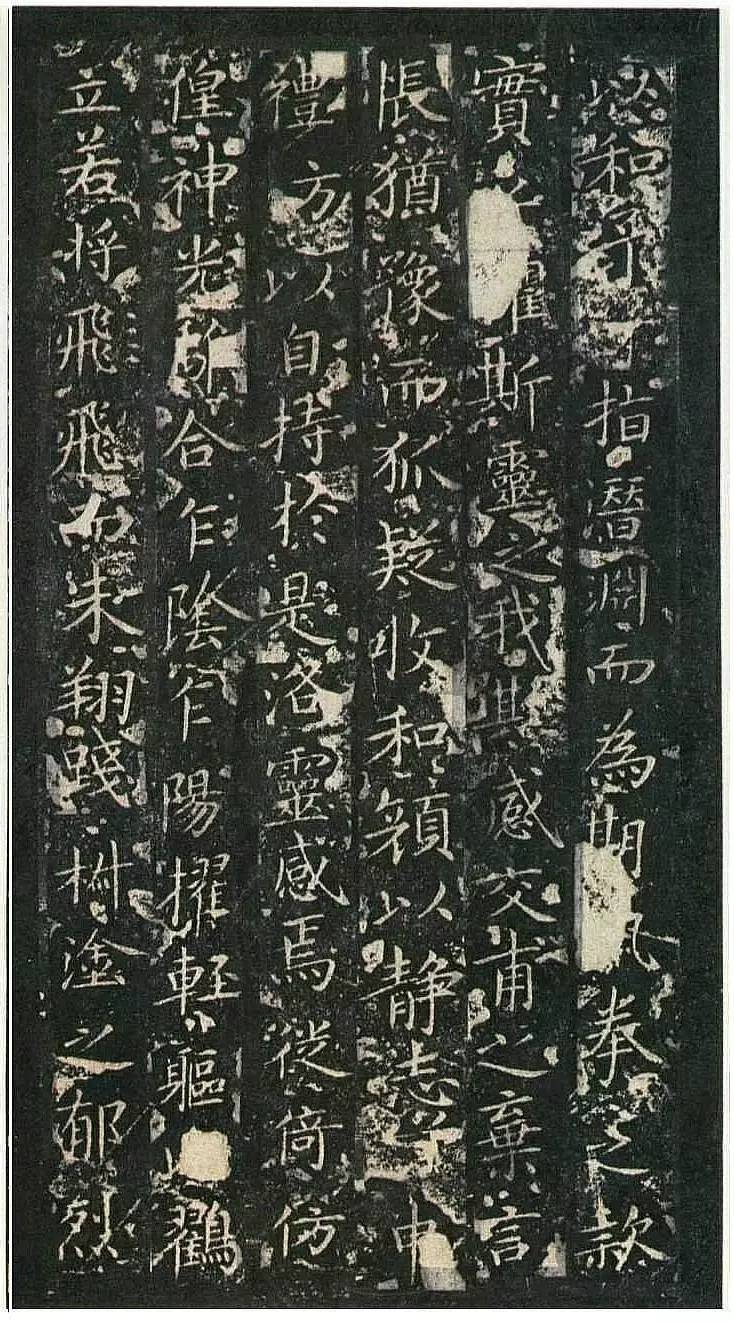 以和予兮指潛淵而為期拳之款
實兮懼斯靈之我其感交甫之棄言
悵猶豫而狐疑收和顏以靜志兮申
禮方以自持於是洛靈感焉徙倚仿
偟神光合乍陰乍陽擢輕軀以鶴
立若將飛飛而未翔踐椒塗之郁烈